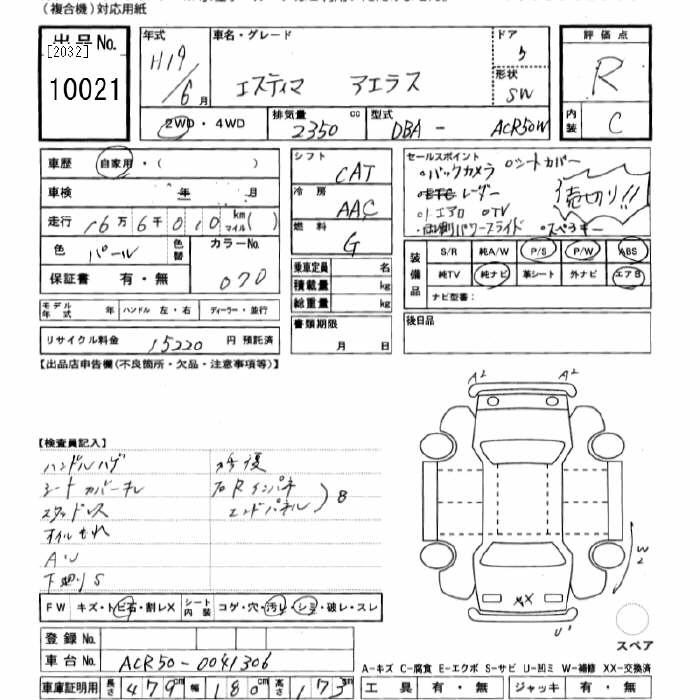 (複合機)対応用紙
出品 No.
[2032]
10021
年式
H19/6月
車名・グレード
エスティマ アエラス
ドア
5
形状
SW
評価点
R
内装
C
2WD・4WD
排気量
2350 cc
型式
DBA - ACR50W
車歴 自家用・( )
車検 年 月
走行 16万6千010 km マイル( )
色 パール
色替
カラーNo. 070
保証書 有・無
シフト CAT
冷房 AAC
燃料 G
乗車定員 名
積載量 kg
総重量 kg
書類期限
月 日
セールスポイント
・バックカメラ ○シートカバー
レーダー
エアロ ○TV
パワースライド ・スペアキー
売切り!!
装備品
S/R 純A/W P/S P/W ABS
純TV 純ナビ 革シート 外ナビ エアB
ナビ型番:
後日品
モデル年式 年 ハンドル 左・右 ディーラー・並行
リサイクル料金 15220 円 預託済
【出品店申告欄(不良箇所・欠品・注意事項等)】
A2 A2
【検査員記入】
ハンドルハゲ
シートカバーキレ
スタッドレス
オイルもれ
AU
下廻りS
修復
右Rインパネ
エンドパネル
B
W2
XX
U1
FW キズ・トビ石・割レX シート内装 コゲ・穴・汚レ・シミ・破レ・スレ
登録 No.
車台 No. ACR50-0041306
車庫証明用 長さ 479cm 幅 180cm 高さ 173cm
スペア
A-キズ C-腐食 E-エクボ S-サビ U-凹ミ W-補修 XX-交換済
工具 有・無 ジャッキ 有・無